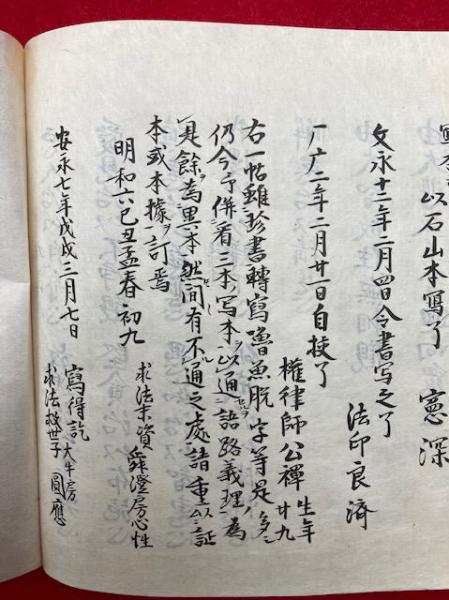 以石山本寫了 憲深
文永十二年二月四日令書写之了
法印良済
二年二月廿一日自挍了
權律師公禪 生年廿九
右一帖雖珍書轉寫魯魚脱字等是多
仍今併看三本写本以通語路義理為
是餘為異本然間有不通之處請重以証
本或本據訂焉
明和六己丑孟春初九
求法末資舜澄房心性
安永七年戊戌三月七日 寫得訖 大牛房
求法救世子 圓應